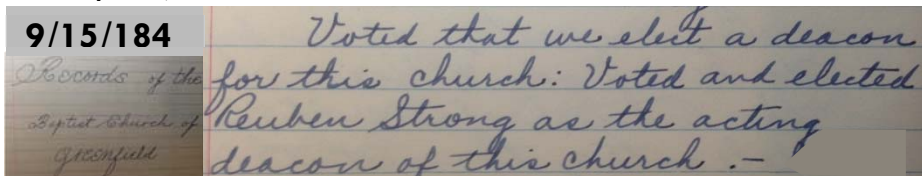 9/15/184
Records of the
Baptist Church of
Greenfield
Voted that we elect a deacon
for this church: Voted and elected
Reuben Strong as the acting
deacon of this church.-